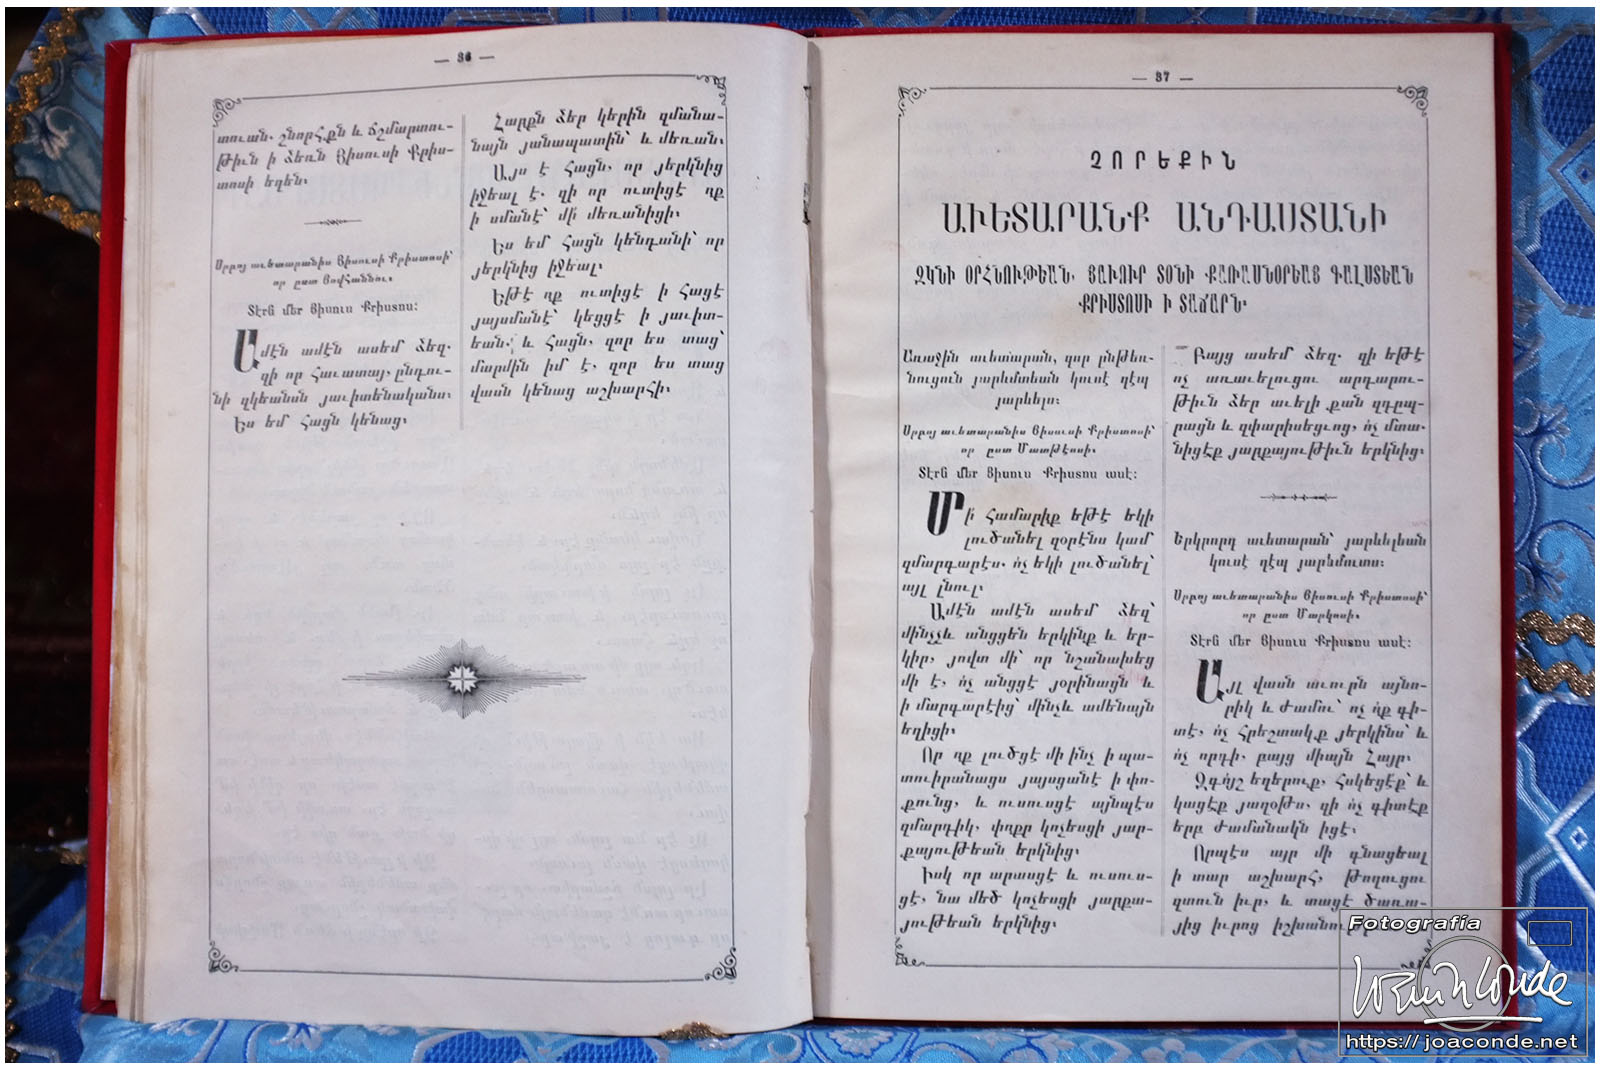 — 36 —
տուան. շնորհքն և ճշմարտու-
թիւն ի ձեռն Յիսուսի Քրիս-
տոսի եղեն։
Սրբոյ աւետարանիս Յիսուսի Քրիստոսի՝
որ ըստ Յովհաննու։
Տէրն մեր Յիսուս Քրիստոս։
Ամէն ամէն ասեմ ձեզ.
զի որ հաւատայ, ընդու-
նի զկեանսն յաւիտենականս։
Ես եմ հացն կենաց։
Հարքն ձեր կերին զմանա-
նայն յանապատին՝ և մեռան։
Այս է հացն, որ յերկնից
իջեալ է. զի որ ուտիցէ ոք
ի սմանէ՝ մի՛ մեռանիցի։
Ես եմ հացն կենդանի՝ որ
յերկնից իջեալ։
Եթէ ոք ուտիցէ ի հացէ
յայսմանէ՝ կեցցէ ի յաւիտ-
եան. և հացն, զոր ես տաց՝
մարմին իմ է, զոր ես տաց
վասն կենաց աշխարհի։
— 37 —
ՉՈՐԵՔԻՆ
ԱՒԵՏԱՐԱՆՔ ԱՆԴԱՍՏԱՆԻ
ՋԿՆԻ ՕՐՀՆՈՒԹԵԱՆ, ՅԱՒՈՒՐ ՏՕՆԻ ՔԱՌԱՍՆՕՐԵԱՅ ԳԱԼՍՏԵԱՆ
ՔՐԻՍՏՈՍԻ Ի ՏԱՃԱՐՆ։
Առաջին աւետարան, զոր ընթեռ-
նուցուն յարևմտեան կուսէ դէպ
յարևելս։
Սրբոյ աւետարանիս Յիսուսի Քրիստոսի՝
որ ըստ Մատթէոսի։
Տէրն մեր Յիսուս Քրիստոս ասէ։
Մի՛ համարիք եթէ եկի
լուծանել զօրէնս կամ
զմարգարէս. ո՛չ եկի լուծանել՝
այլ լնուլ։
Ամէն ամէն ասեմ ձեզ՝
մինչև անցցեն երկինք և եր-
կիր, յովտ մի՝ որ նշանախեց
մի է, ո՛չ անցցէ յօրինացն և
ի մարգարէից՝ մինչև ամենայն
եղիցի։
Որ ոք լուծցէ մի ինչ ի պա-
տուիրանացս յայսցանէ ի փո-
քունց, և ուսուսցէ այնպէս
զմարդիկ, փոքր կոչեսցի յար-
քայութեան երկնից։
Իսկ որ արասցէ և ուսուս-
ցէ, նա մեծ կոչեսցի յարքա-
յութեան երկնից։
Բայց ասեմ ձեզ. զի եթէ
ոչ առաւելուցու արդարու-
թիւն ձեր աւելի քան զդըպ-
րացն և զփարիսեցւոց, ո՛չ մտա-
նիցէք յարքայութիւն երկնից։
Երկրորդ աւետարան՝ յարևելեան
կուսէ դէպ յարևմուտս։
Սրբոյ աւետարանիս Յիսուսի Քրիստոսի՝
որ ըստ Մարկոսի։
Տէրն մեր Յիսուս Քրիստոս ասէ։
Այլ վասն աւուրն այնո-
րիկ և ժամու՝ ոչ ո՛ք գի-
տէ, ո՛չ հրեշտակք յերկինս՝ և
ո՛չ որդի, բայց միայն Հայր։
Զգո՛յշ եղերուք, հսկեցէք՝ և
կացէք յաղօթս, զի ո՛չ գիտէք
երբ ժամանակն իցէ։
Որպէս այր մի գնացեալ
ի տար աշխարհ, թողուցու
զտուն իւր, և տացէ ծառա-
յից իւրոց
Fotografía
https://joaconde.net